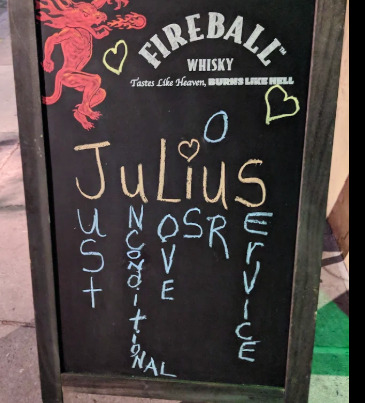 FIREBALL™
WHISKY
Tastes Like Heaven, BURNS LIKE HELL
O
JuLiuS
uSt
NCONditiONAL
OVE
S
R
ErViCE